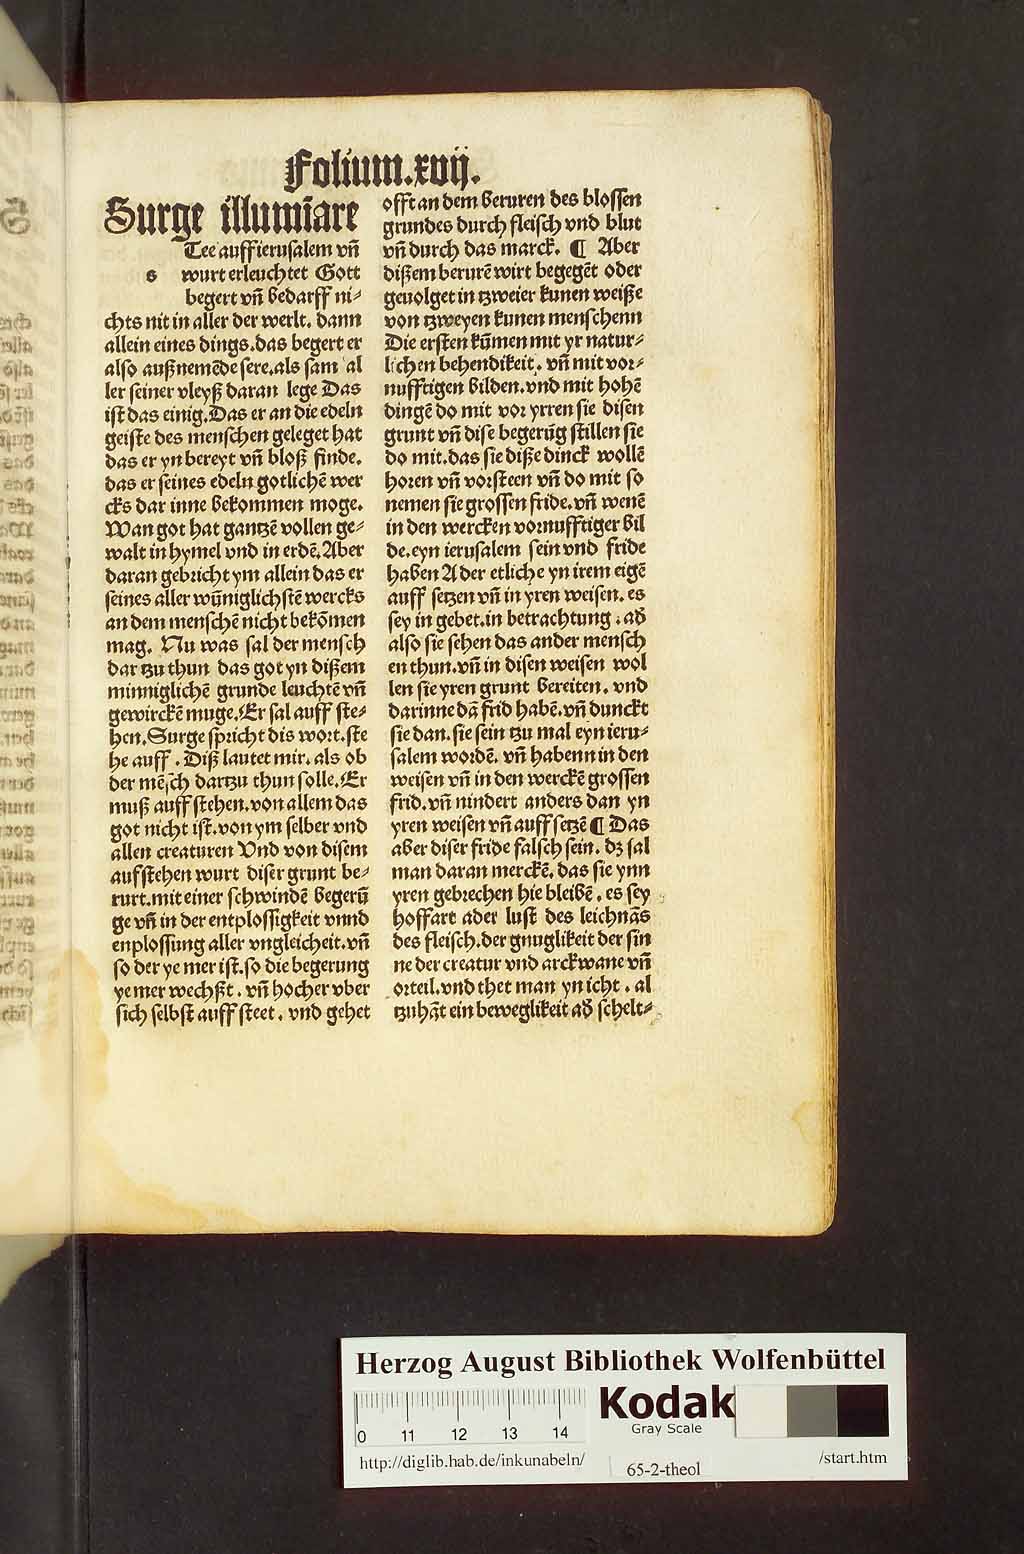 Folium.xvij.
Surge illumīare
Tee auff ierusalem vn̄
s wurt erleuchtet Gott
begert vn̄ bedarff ni⸗
chts nit in aller der werlt. dann
allein eines dings.das begert er
also außnemēde sere.als sam al
ler seiner vleyß daran lege Das
ist das einig.Das er an die edeln
geiste des menschen geleget hat
das er yn bereyt vn̄ bloß finde.
das er seines edeln gotlichē wer
cks dar inne bekommen moge.
Wan got hat gantzē vollen ge⸗
walt in hymel vnd in erdē.Aber
daran gebricht ym allein das er
seines aller wūniglichstē wercks
an dem menschē nicht bekōmen
mag. Nu was sal der mensch
dar tzu thun das got yn dißem
minniglichē grunde leuchtē vn̄
gewirckē muge.Er sal auff ste⸗
hen.Surge spricht dis wort.ste
he auff. Diß lautet mir. als ob
der mēsch dartzu thun solle.Er
muß auff stehen.von allem das
got nicht ist.von ym selber vnd
allen creaturen Vnd von disem
aufstehen wurt diser grunt be⸗
rurt.mit einer schwindē begerū
ge vn̄ in der entplossigkeit vnnd
enplossung aller vngleicheit.vn̄
so der ye mer ist.so die begerung
ye mer wechßt. vn̄ hocher vber
sich selbst auff steet. vnd gehet
offt an dem beruren des blossen
grundes durch fleisch vnd blut
vn̄ durch das marck. ¶ Aber
dißem berurē wirt begegēt oder
geuolget in tzweier kunen weiße
von tzweyen kunen menschenn
Die ersten kūmen mit yr natur⸗
lichen behendikeit. vn̄ mit vor⸗
nufftigen bilden.vnd mit hohē
dingē do mit vor yrren sie disen
grunt vn̄ dise begerūg stillen sie
do mit.das sie diße dinck wollē
horen vn̄ vorsteen vn̄ do mit so
nemen sie grossen fride.vn̄ wenē
in den wercken vornufftiger bil
de.eyn ierusalem sein vnd fride
haben Ader etliche yn irem eigē
auff setzen vn̄ in yren weisen. es
sey in gebet.in betrachtung. ad̄
also sie sehen das ander mensch
en thun.vn̄ in disen weisen wol
len sie yren grunt bereiten. vnd
darinne dā frid habē.vn̄ dunckt
sie dan.sie sein tzu mal eyn ieru⸗
salem wordē. vn̄ habenn in den
weisen vn̄ in den werckē grossen
frid.vn̄ nindert anders dan yn
yren weisen vn̄ auff setzē ¶ Das
aber diser fride falsch sein. dz sal
man daran merckē. das sie ynn
yren gebrechen hie bleibē. es sey
hoffart ader lust des leichnās
des fleisch.der gnuglikeit der sin
ne der creatur vnd arckwane vn̄
orteil.vnd thet man yn icht. al
tzuhāt ein beweglikeit ad̄ schelt⸗
Herzog August Bibliothek Wolfenbüttel
0 11 12 13 14
Kodak
Gray Scale
http://diglib.hab.de/inkunabeln/
65-2-theol
/start.htm